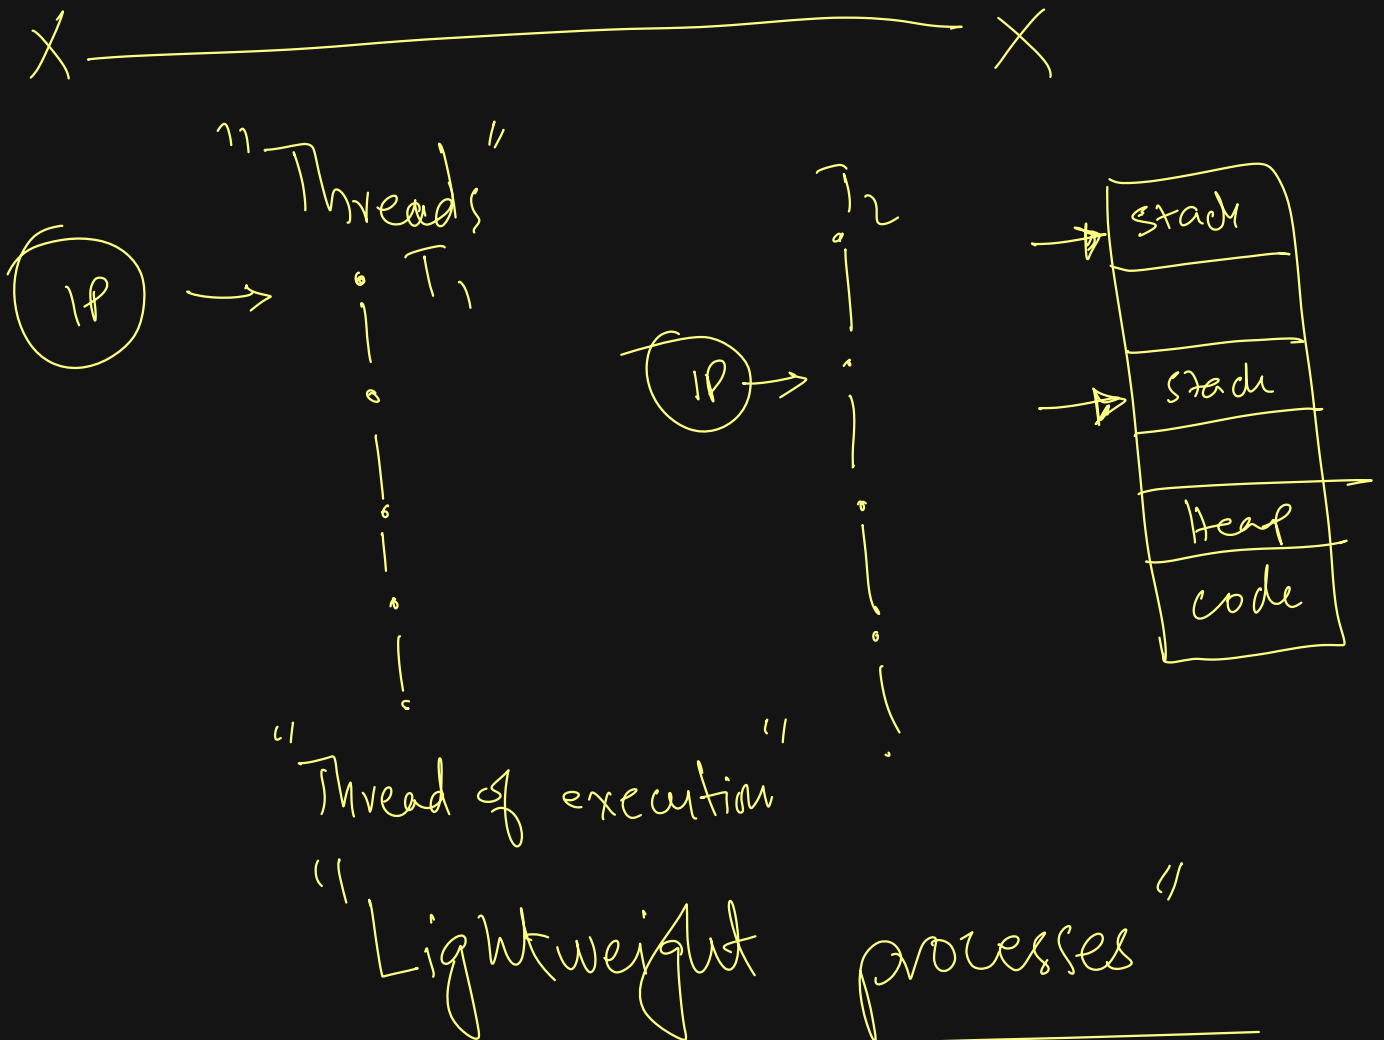 X X
"Threads"
T1
T2
IP
IP
stack
stack
Heap
code
"Thread of execution"
"Lightweight processes"